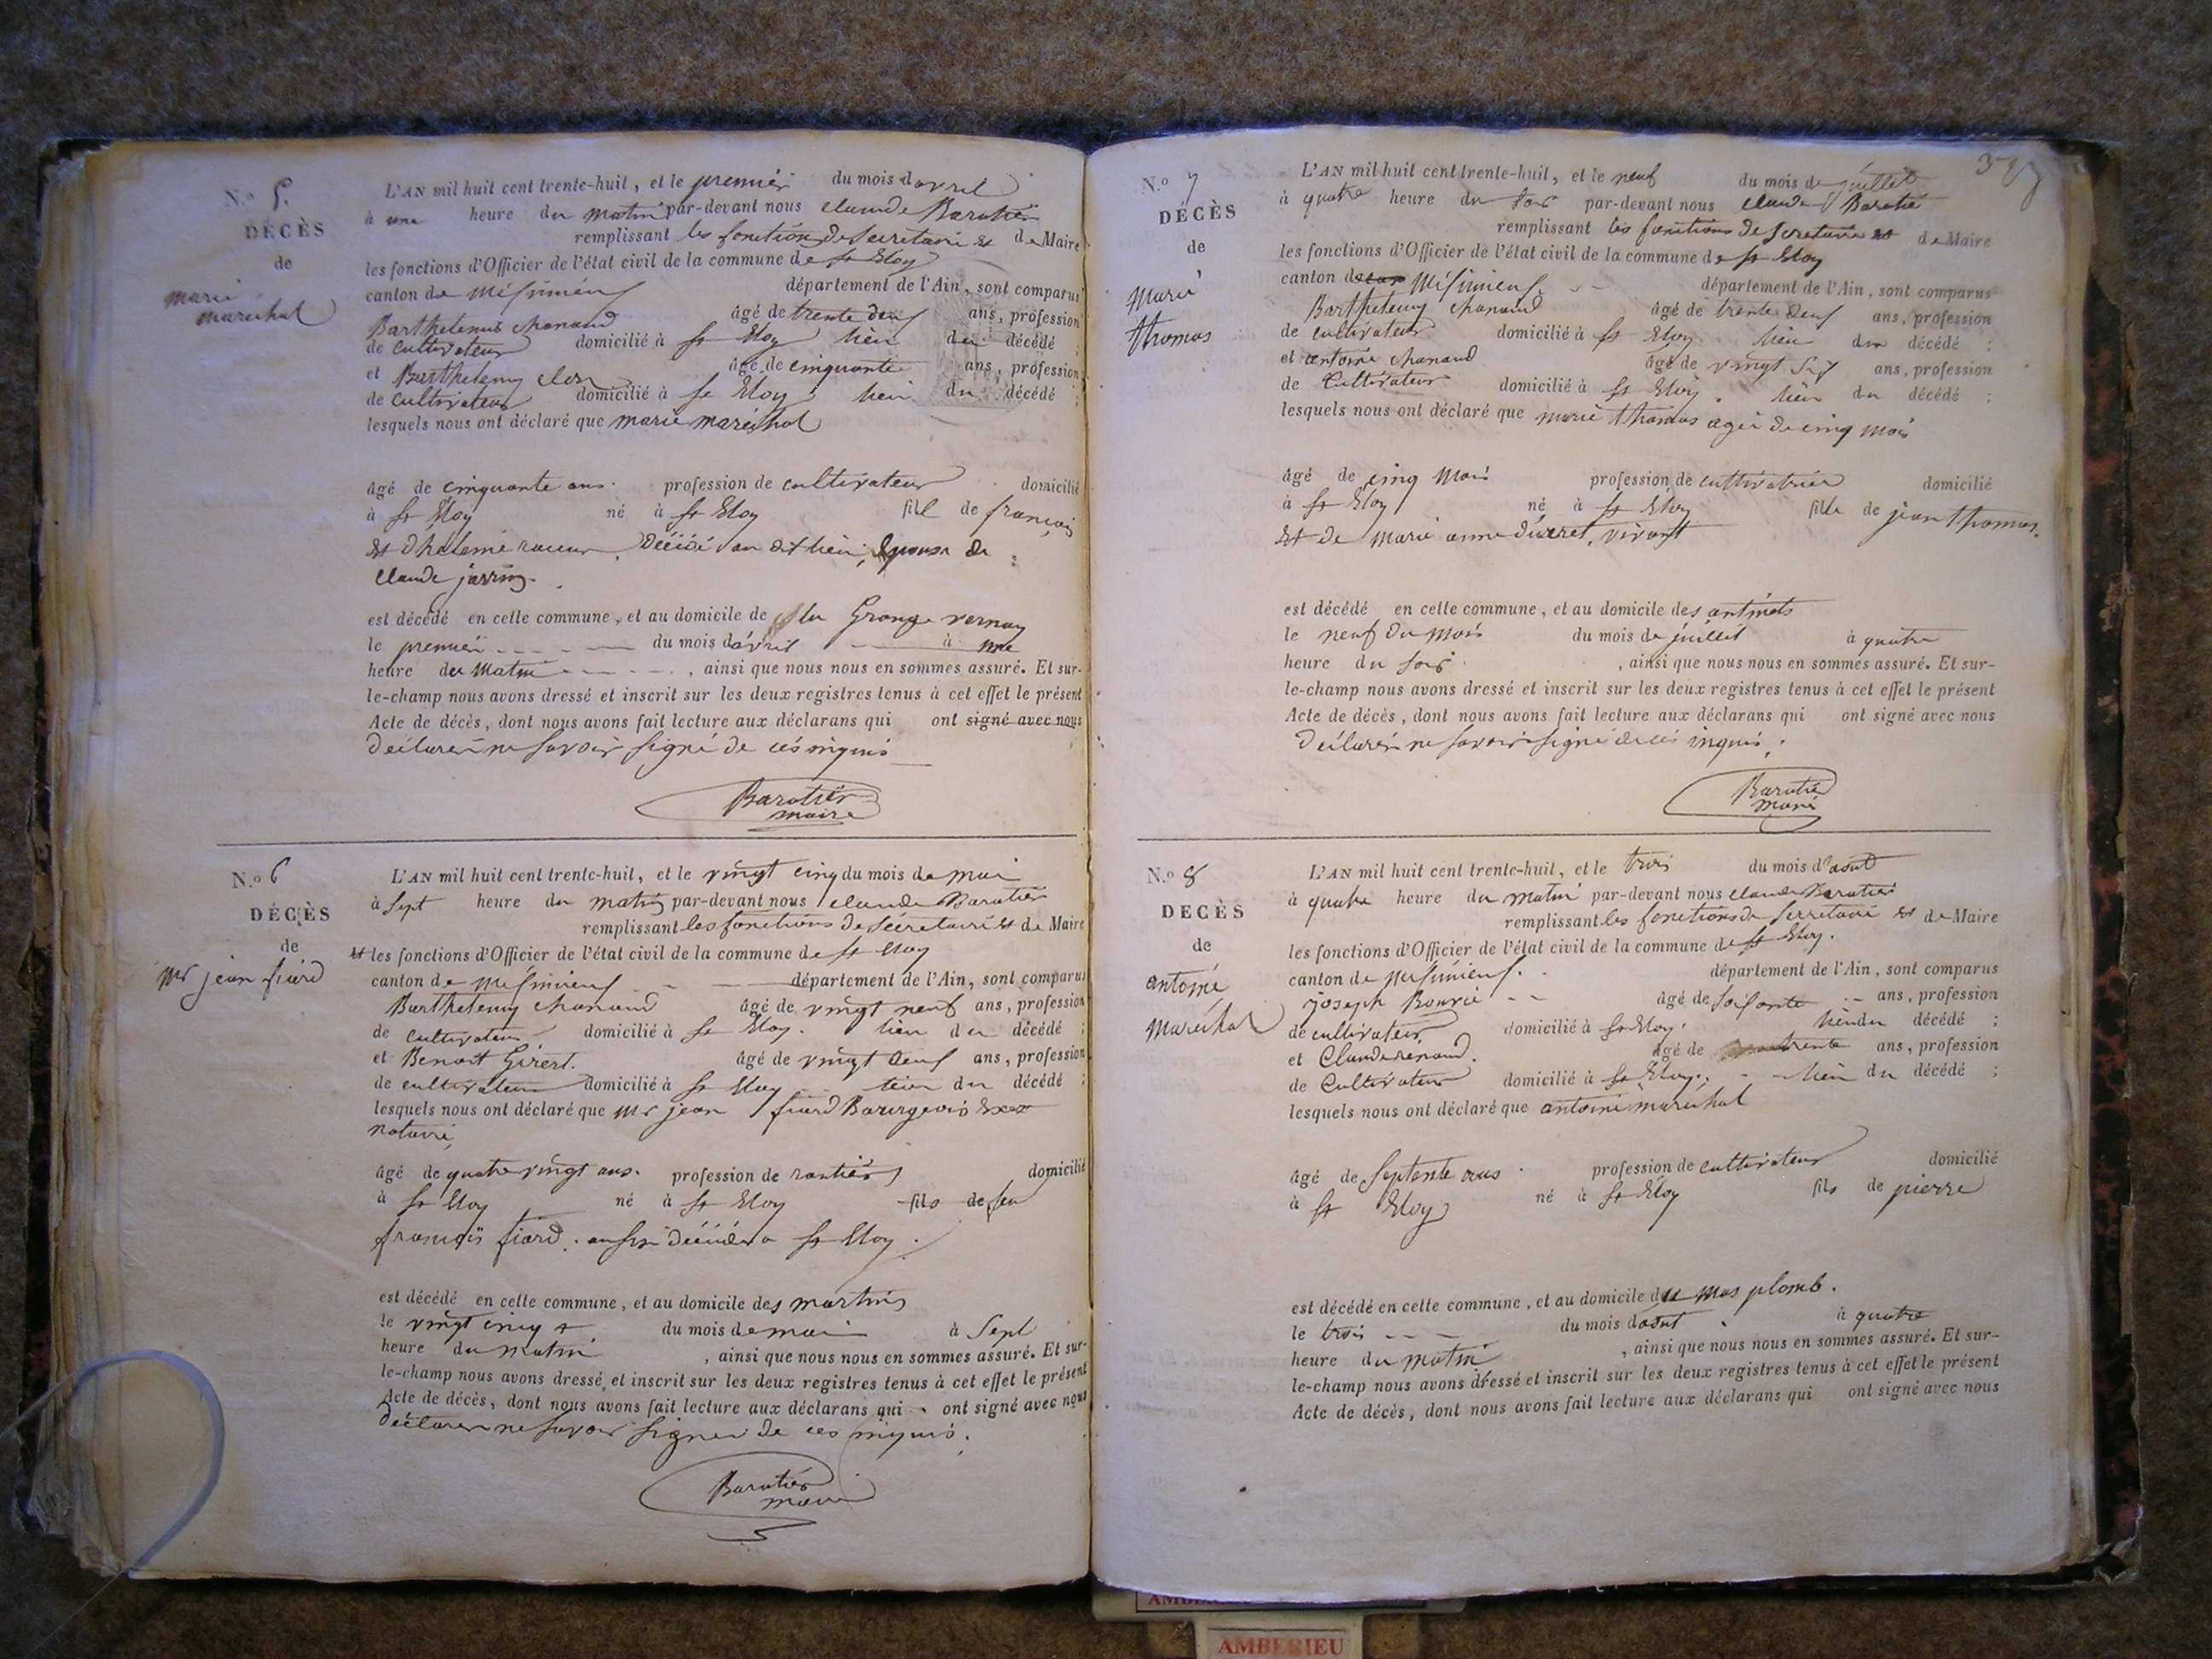 N.o 5.
DÉCÈS
de
marie
maréchal
L'AN mil huit cent trente-huit, et le premier du mois d'avril
à une heure du matin par-devant nous claude Baratier
remplissant les fonctions de Secretaire et de Maire
les fonctions d'Officier de l'état civil de la commune de St Eloy
canton de département de l'Ain, sont comparus
Barthelemis chanand âgé de trente deux ans, profession
de cultivateur domicilié à St Eloy lieu du décédé ;
et Barthelemy âgé de cinquante ans, profession
de cultivateur domicilié à St Eloy lieu du décédé ;
lesquels nous ont déclaré que marie maréchal
âgé de cinquante ans. profession de cultivateur domicilié
à St Eloy né à St Eloy fill de françois
et décédé au dit lieu, Epouse de
claude
est décédé en cette commune, et au domicile de la Grange vernay
le premier du mois d'avril à une
heure du matin, ainsi que nous nous en sommes assuré. Et sur-
le-champ nous avons dressé et inscrit sur les deux registres tenus à cet effet le présent
Acte de décès, dont nous avons fait lecture aux déclarans qui ont signé avec nous
déclarer ne savoir signé de ces
Baratier
maire
N.o 6
DÉCÈS
de
Mr jean fiard
L'AN mil huit cent trente-huit, et le vingt cinq du mois de mai
à Sept heure du matin par-devant nous claude Baratier
remplissant les fonctions de Sécretaire et de Maire
et les fonctions d'Officier de l'état civil de la commune de St Eloy
canton de département de l'Ain, sont comparus
Barthelemy chanand âgé de vingt neuf ans, profession
de cultivateur domicilié à St Eloy. lieu du décédé ;
et Benoit Girert. âgé de vingt deux ans, profession
de cultivateur domicilié à St Eloy lieu du décédé ;
lesquels nous ont déclaré que Mr jean fiard Bourgeois
notaire
âgé de quatre vingt ans. profession de rantier domicilié
à St Eloy né à St Eloy fils de feu
françois fiard. aussi décédé a St Eloy.
est décédé en cette commune, et au domicile des martins
le vingt cinq du mois de mai à Sept
heure du matin, ainsi que nous nous en sommes assuré. Et sur-
le-champ nous avons dressé et inscrit sur les deux registres tenus à cet effet le présent
Acte de décès, dont nous avons fait lecture aux déclarans qui ont signé avec nous
déclarer ne savoir signer de ces
Baratier
maire
N.o 7
DÉCÈS
de
Marie
thomas
L'AN mil huit cent trente-huit, et le neuf du mois de juillet
à quatre heure du soir par-devant nous claude Baratié
remplissant les fonctions de Secretaire et de Maire
les fonctions d'Officier de l'état civil de la commune de St Eloy
canton de département de l'Ain, sont comparus
Barthelemy chanand âgé de trente deux ans, profession
de cultivateur domicilié à St Eloy. lieu du décédé ;
et antoine chanand âgé de vingt ans, profession
de Cultivateur domicilié à St Eloy. lieu du décédé ;
lesquels nous ont déclaré que marie thomas agée de cinq mois
âgé de cinq Mois profession de cultivatrice domicilié
à St Eloy né à St Eloy fille de jean thomas.
et de marie anne vivant
est décédé en cette commune, et au domicile des
le neuf du mois du mois de juillet à quatre
heure du soir, ainsi que nous nous en sommes assuré. Et sur-
le-champ nous avons dressé et inscrit sur les deux registres tenus à cet effet le présent
Acte de décès, dont nous avons fait lecture aux déclarans qui ont signé avec nous
déclarer ne savoir signé de ces
Baratié
N.o 8
DECÈS
de
antoine
Maréchal
L'AN mil huit cent trente-huit, et le trois du mois d'aout
à quatre heure du matin par-devant nous claude Baratier
remplissant les fonctions de Secretaire et de Maire
les fonctions d'Officier de l'état civil de la commune de St Eloy.
canton de département de l'Ain, sont comparus
joseph âgé de soisante ans, profession
de cultivateur domicilié à St Eloy. lieu du décédé ;
et Claude renand. âgé de trente ans, profession
de Cultivateur domicilié à St Eloy. lieu du décédé ;
lesquels nous ont déclaré que antoine maréchal
âgé de Septente ans profession de cultivateur domicilié
à St Eloy né à St Eloy fils de pierre
est décédé en cette commune, et au domicile du mas plomb.
le trois du mois d'aout à quatre
heure du matin, ainsi que nous nous en sommes assuré. Et sur-
le-champ nous avons dressé et inscrit sur les deux registres tenus à cet effet le présent
Acte de décès, dont nous avons fait lecture aux déclarans qui ont signé avec nous
AMBERIEU